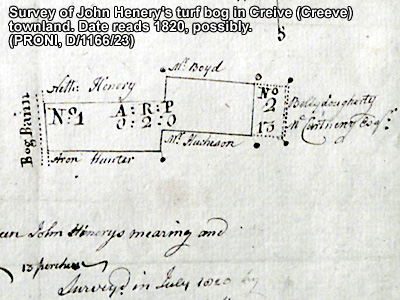 Survey of John Henery's turf bog in Creive (Creeve)
townland. Date reads 1820, possibly.
(PRONI, D/1166/23)
Mr. Boyd
Henery
Bog Bann
No. 1
A : R : P
0 : 2 : 0
No
2
13
Ballydougherty
McCartneny Esqr.
Aron Hunter
Mr. Hucheson
John Henerys mearing and
13 perches
Survey'd in July 1820 by